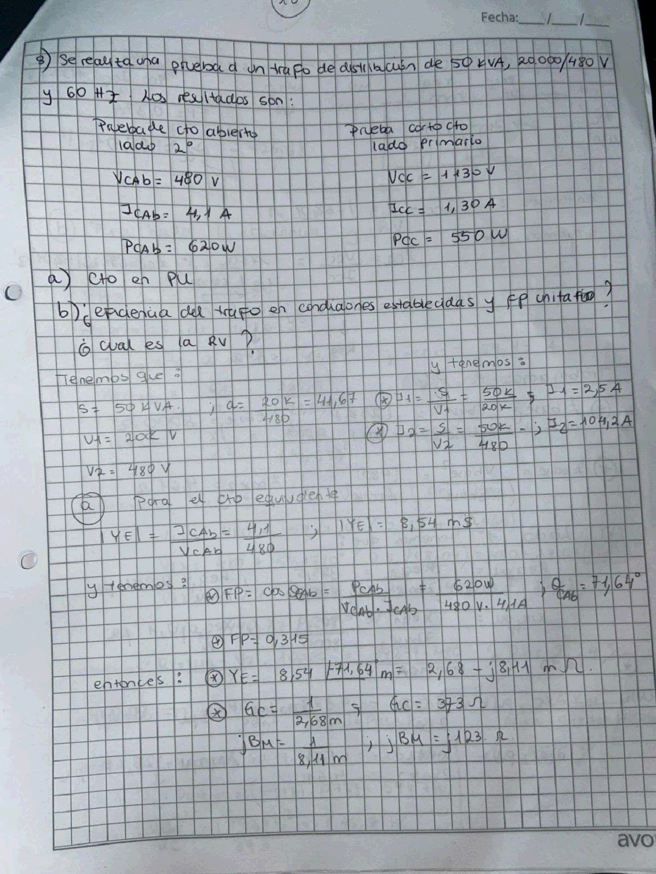 Fecha: __/__/__
8) Se realiza una prueba a un trafo de distribución de 50 kVA, 20.000/480 V
y 60 Hz. Los resultados son:
Prueba de cto abierto
lado 2°
VCAb = 480 V
ICAb = 4,1 A
PCAb = 620 W
Prueba corto cto
lado Primario
Vcc = 1130 V
Icc = 1,30 A
Pcc = 550 W
a) Cto en PU
b) ¿eficiencia del trafo en condiciones establecidas y FP unitario?
¿ cual es la RV ?
Tenemos que:
S = 50 KVA. ; a = 20K/480 = 41,67
V1 = 20K V
V2 = 480 V
y tenemos:
I1 = S/V1 = 50K/20K ; I1 = 2,5 A
I2 = S/V2 = 50K/480 ; I2 = 104,2 A
a Para el cto equivalente
|YE| = ICAb/VCAb = 4,1/480 ; |YE| = 8,54 mS
y tenemos: FP = cos θCAb = PCAb/VCAb · ICAb = 620W/480 V · 4,1A ; θCAb = 71,64°
FP = 0,315
entonces: YE = 8,54 |-71,64° m = 2,68 - j8,11 m Ω.
GC = 1/2,68m ; GC = 373 Ω
jBM = 1/8,11 m ; jBM = j123 Ω
avo